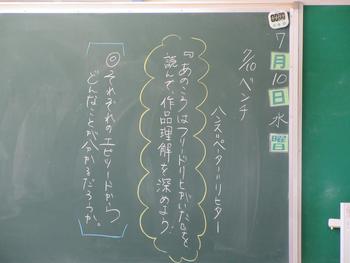 7月10日水曜
7/10ベンチ
ハンス=ペーター=リヒター
『あのころはフリードリヒがいた』を
読んで、作品理解を深めよう。
◎それぞれのエピソードから
どんなことが分かるだろうか。